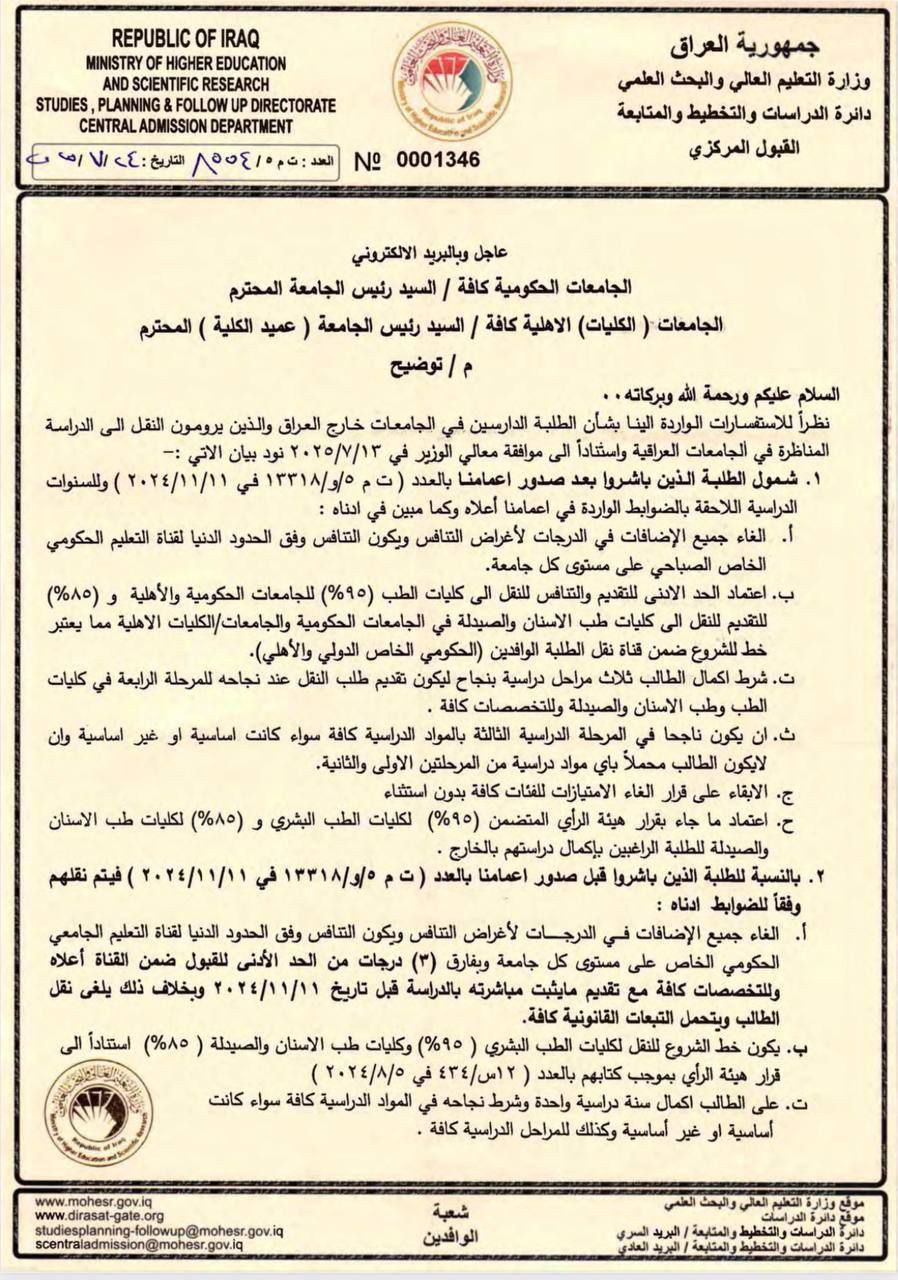 REPUBLIC OF IRAQ
MINISTRY OF HIGHER EDUCATION
AND SCIENTIFIC RESEARCH
STUDIES , PLANNING & FOLLOW UP DIRECTORATE
CENTRAL ADMISSION DEPARTMENT
جمهورية العراق
وزارة التعليم العالي والبحث العلمي
دائرة الدراسات والتخطيط والمتابعة
القبول المركزي
العدد : ت م ٥/ التاريخ :
№ 0001346
عاجل وبالبريد الالكتروني
الجامعات الحكومية كافة / السيد رئيس الجامعة المحترم
الجامعات ( الكليات) الاهلية كافة / السيد رئيس الجامعة ( عميد الكلية ) المحترم
م / توضيح
السلام عليكم ورحمة الله وبركاته٠٠
نظراً للاستفسارات الواردة الينا بشأن الطلبة الدارسين في الجامعات خارج العراق والذين يرومون النقل الى الدراسة
المناظرة في الجامعات العراقية واستناداً الى موافقة معالي الوزير في ٢٠٢٥/٧/١٣ نود بيان الاتي :–
١. شمول الطلبة الذين باشروا بعد صدور اعمامنا بالعدد ( ت م ٥/و/١٣٣١٨ في ٢٠٢٤/١١/١١ ) وللسنوات
الدراسية اللاحقة بالضوابط الواردة في اعمامنا أعلاه وكما مبين في ادناه :
أ. الغاء جميع الإضافات في الدرجات لأغراض التنافس ويكون التنافس وفق الحدود الدنيا لقناة التعليم الحكومي
الخاص الصباحي على مستوى كل جامعة.
ب. اعتماد الحد الادنى للتقديم والتنافس للنقل الى كليات الطب (٩٥%) للجامعات الحكومية والأهلية و (٨٥%)
للتقديم للنقل الى كليات طب الاسنان والصيدلة في الجامعات الحكومية والجامعات/الكليات الاهلية مما يعتبر
خط للشروع ضمن قناة نقل الطلبة الوافدين (الحكومي الخاص الدولي والأهلي).
ت. شرط اكمال الطالب ثلاث مراحل دراسية بنجاح ليكون تقديم طلب النقل عند نجاحه للمرحلة الرابعة في كليات
الطب وطب الاسنان والصيدلة وللتخصصات كافة .
ث. ان يكون ناجحا في المرحلة الدراسية الثالثة بالمواد الدراسية كافة سواء كانت اساسية او غير اساسية وان
لايكون الطالب محملاً باي مواد دراسية من المرحلتين الاولى والثانية.
ج. الابقاء على قرار الغاء الامتيازات للفئات كافة بدون استثناء
ح. اعتماد ما جاء بقرار هيئة الرأي المتضمن (٩٥%) لكليات الطب البشري و (٨٥%) لكليات طب الاسنان
والصيدلة للطلبة الراغبين بإكمال دراستهم بالخارج .
٢. بالنسبة للطلبة الذين باشروا قبل صدور اعمامنا بالعدد ( ت م ٥/و/١٣٣١٨ في ٢٠٢٤/١١/١١ ) فيتم نقلهم
وفقاً للضوابط ادناه :
أ. الغاء جميع الإضافات فـي الدرجـــات لأغراض التنافس ويكون التنافس وفق الحدود الدنيا لقناة التعليم الجامعي
الحكومي الخاص على مستوى كل جامعة وبفارق (٣) درجات من الحد الأدنى للقبول ضمن القناة أعلاه
وللتخصصات كافة مع تقديم مايثبت مباشرته بالدراسة قبل تاريخ ٢٠٢٤/١١/١١ وبخلاف ذلك يلغى نقل
الطالب ويتحمل التبعات القانونية كافة.
ب. يكون خط الشروع للنقل لكليات الطب البشري ( ٩٥%) وكليات طب الاسنان والصيدلة ( ٨٥%) استناداً الى
قرار هيئة الرأي بموجب كتابهم بالعدد ( ١٢س/٤٣٤ في ٢٠٢٤/٨/٥ )
ت. على الطالب اكمال سنة دراسية واحدة وشرط نجاحه في المواد الدراسية كافة سواء كانت
أساسية او غير أساسية وكذلك للمراحل الدراسية كافة .
www.mohesr.gov.iq
www.dirasat-gate.org
studiesplanning-followup@mohesr.gov.iq
scentraladmission@mohesr.gov.iq
شعبة
الوافدين
موقع وزارة التعليم العالي والبحث العلمي
موقع دائرة الدراسات
دائرة الدراسات والتخطيط والمتابعة / البريد السري
دائرة الدراسات والتخطيط والمتابعة / البريد العادي